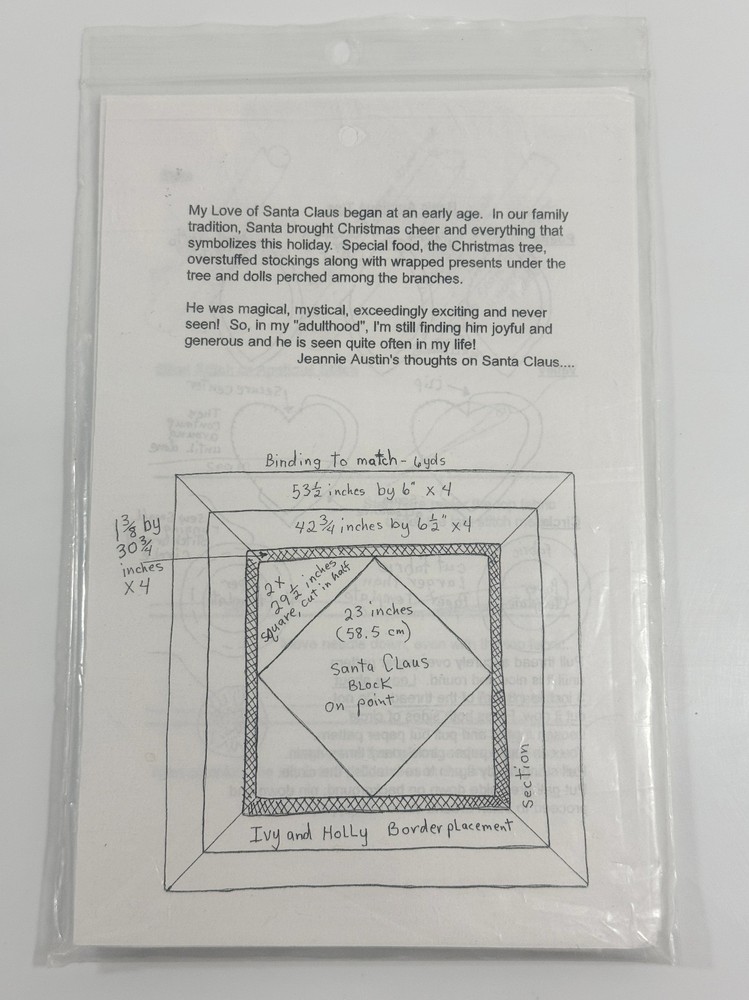 My Love of Santa Claus began at an early age. In our family
tradition, Santa brought Christmas cheer and everything that
symbolizes this holiday. Special food, the Christmas tree,
overstuffed stockings along with wrapped presents under the
tree and dolls perched among the branches.
He was magical, mystical, exceedingly exciting and never
seen! So, in my "adulthood", I'm still finding him joyful and
generous and he is seen quite often in my life!
Jeannie Austin's thoughts on Santa Claus....
Binding to match - 6yds
53 1/2 inches by 6" x 4
42 3/4 inches by 6 1/2" x 4
1 3/8 by
30 3/4
inches
x 4
2x
29 1/2 inches
square, cut in half
23 inches
(58.5 cm)
Santa Claus
Block
on point
Section
Ivy and Holly Border placement